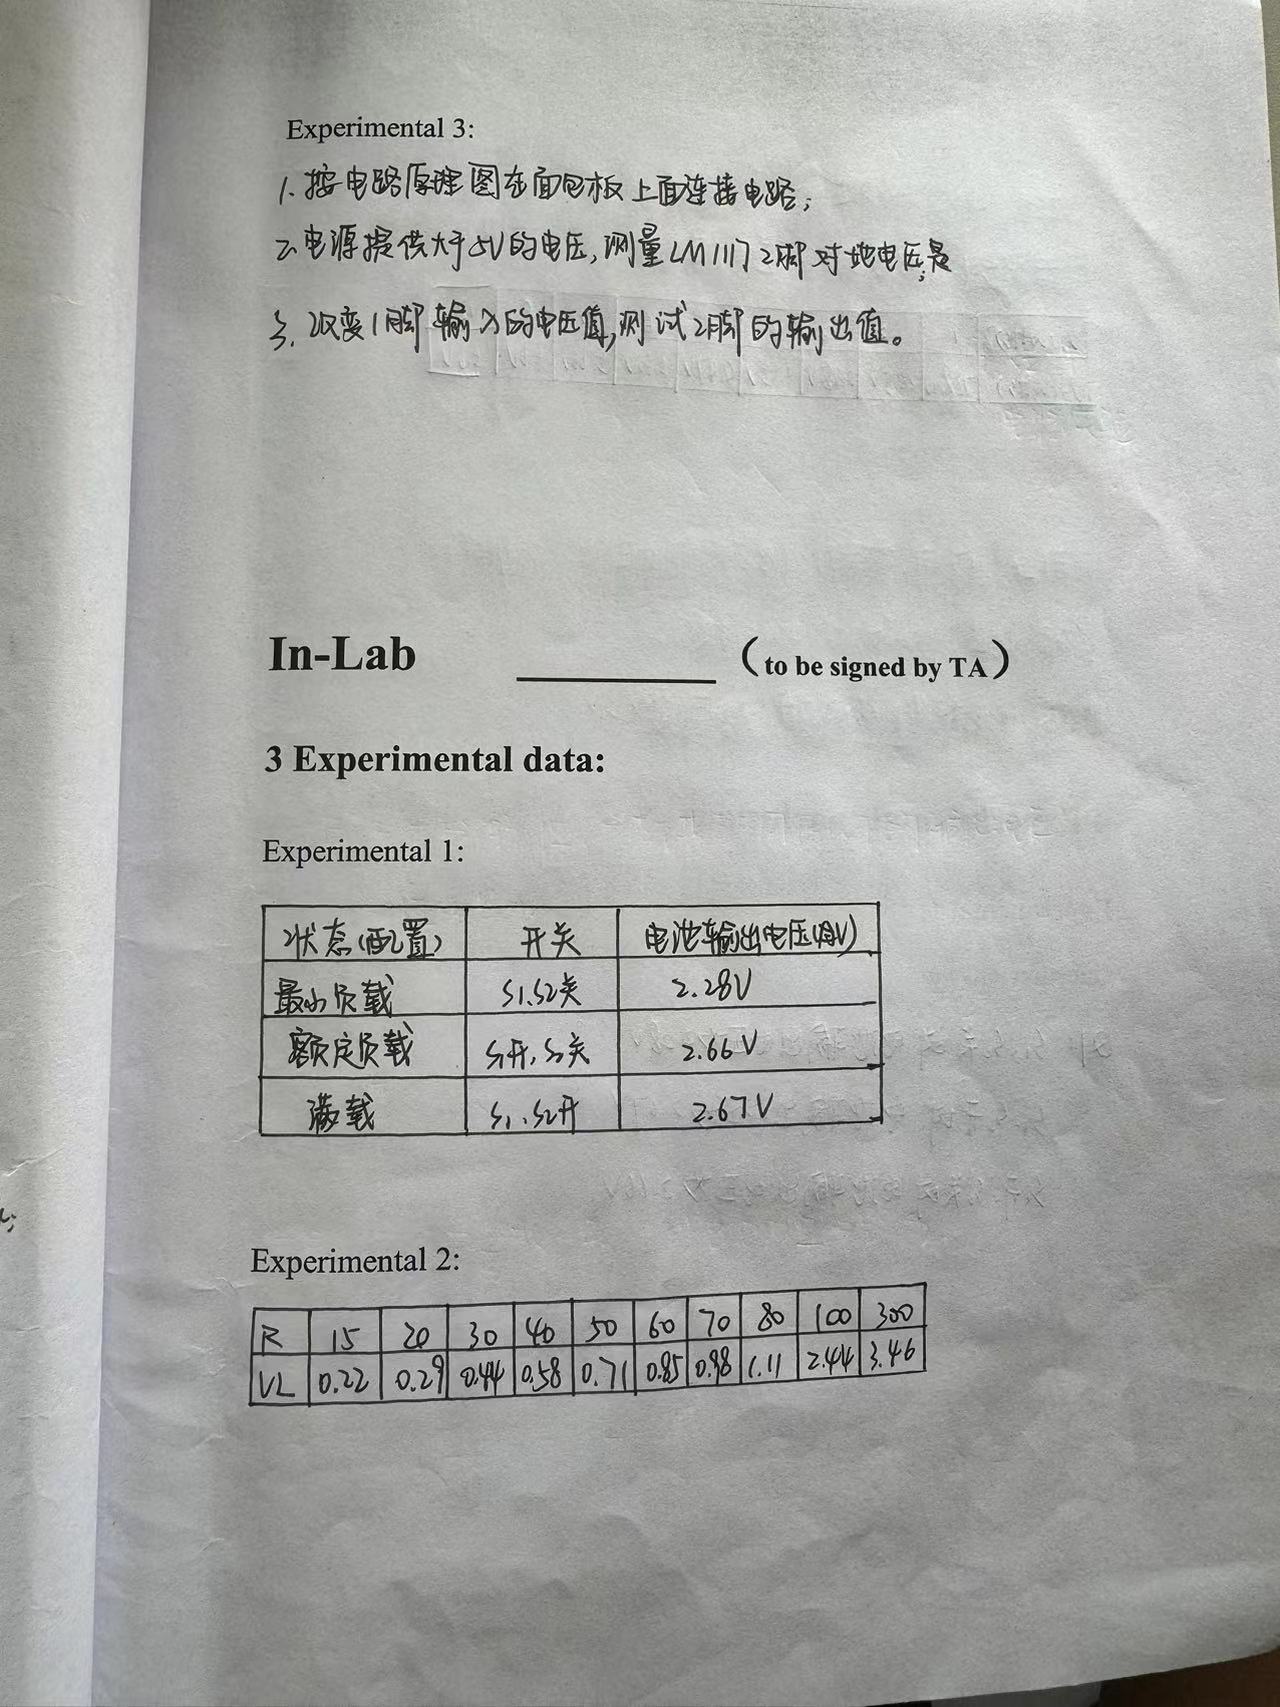 Experimental 3:
1. 按电路原理图在面包板上面连接电路;
2. 电源提供大于5V的电压,测量LM1117 2脚对地电压是
3. 改变1脚输入的电压值,测试2脚的输出值。
In-Lab ________ (to be signed by TA)
3 Experimental data:
Experimental 1:
状态(配置) 开关 电池输出电压(V)
最小负载 S1.S2关 2.28V
额定负载 S1开,S2关 2.66V
满载 S1.S2开 2.67V
Experimental 2:
R 15 20 30 40 50 60 70 80 100 300
VL 0.22 0.29 0.44 0.58 0.71 0.85 0.98 1.11 2.44 3.46